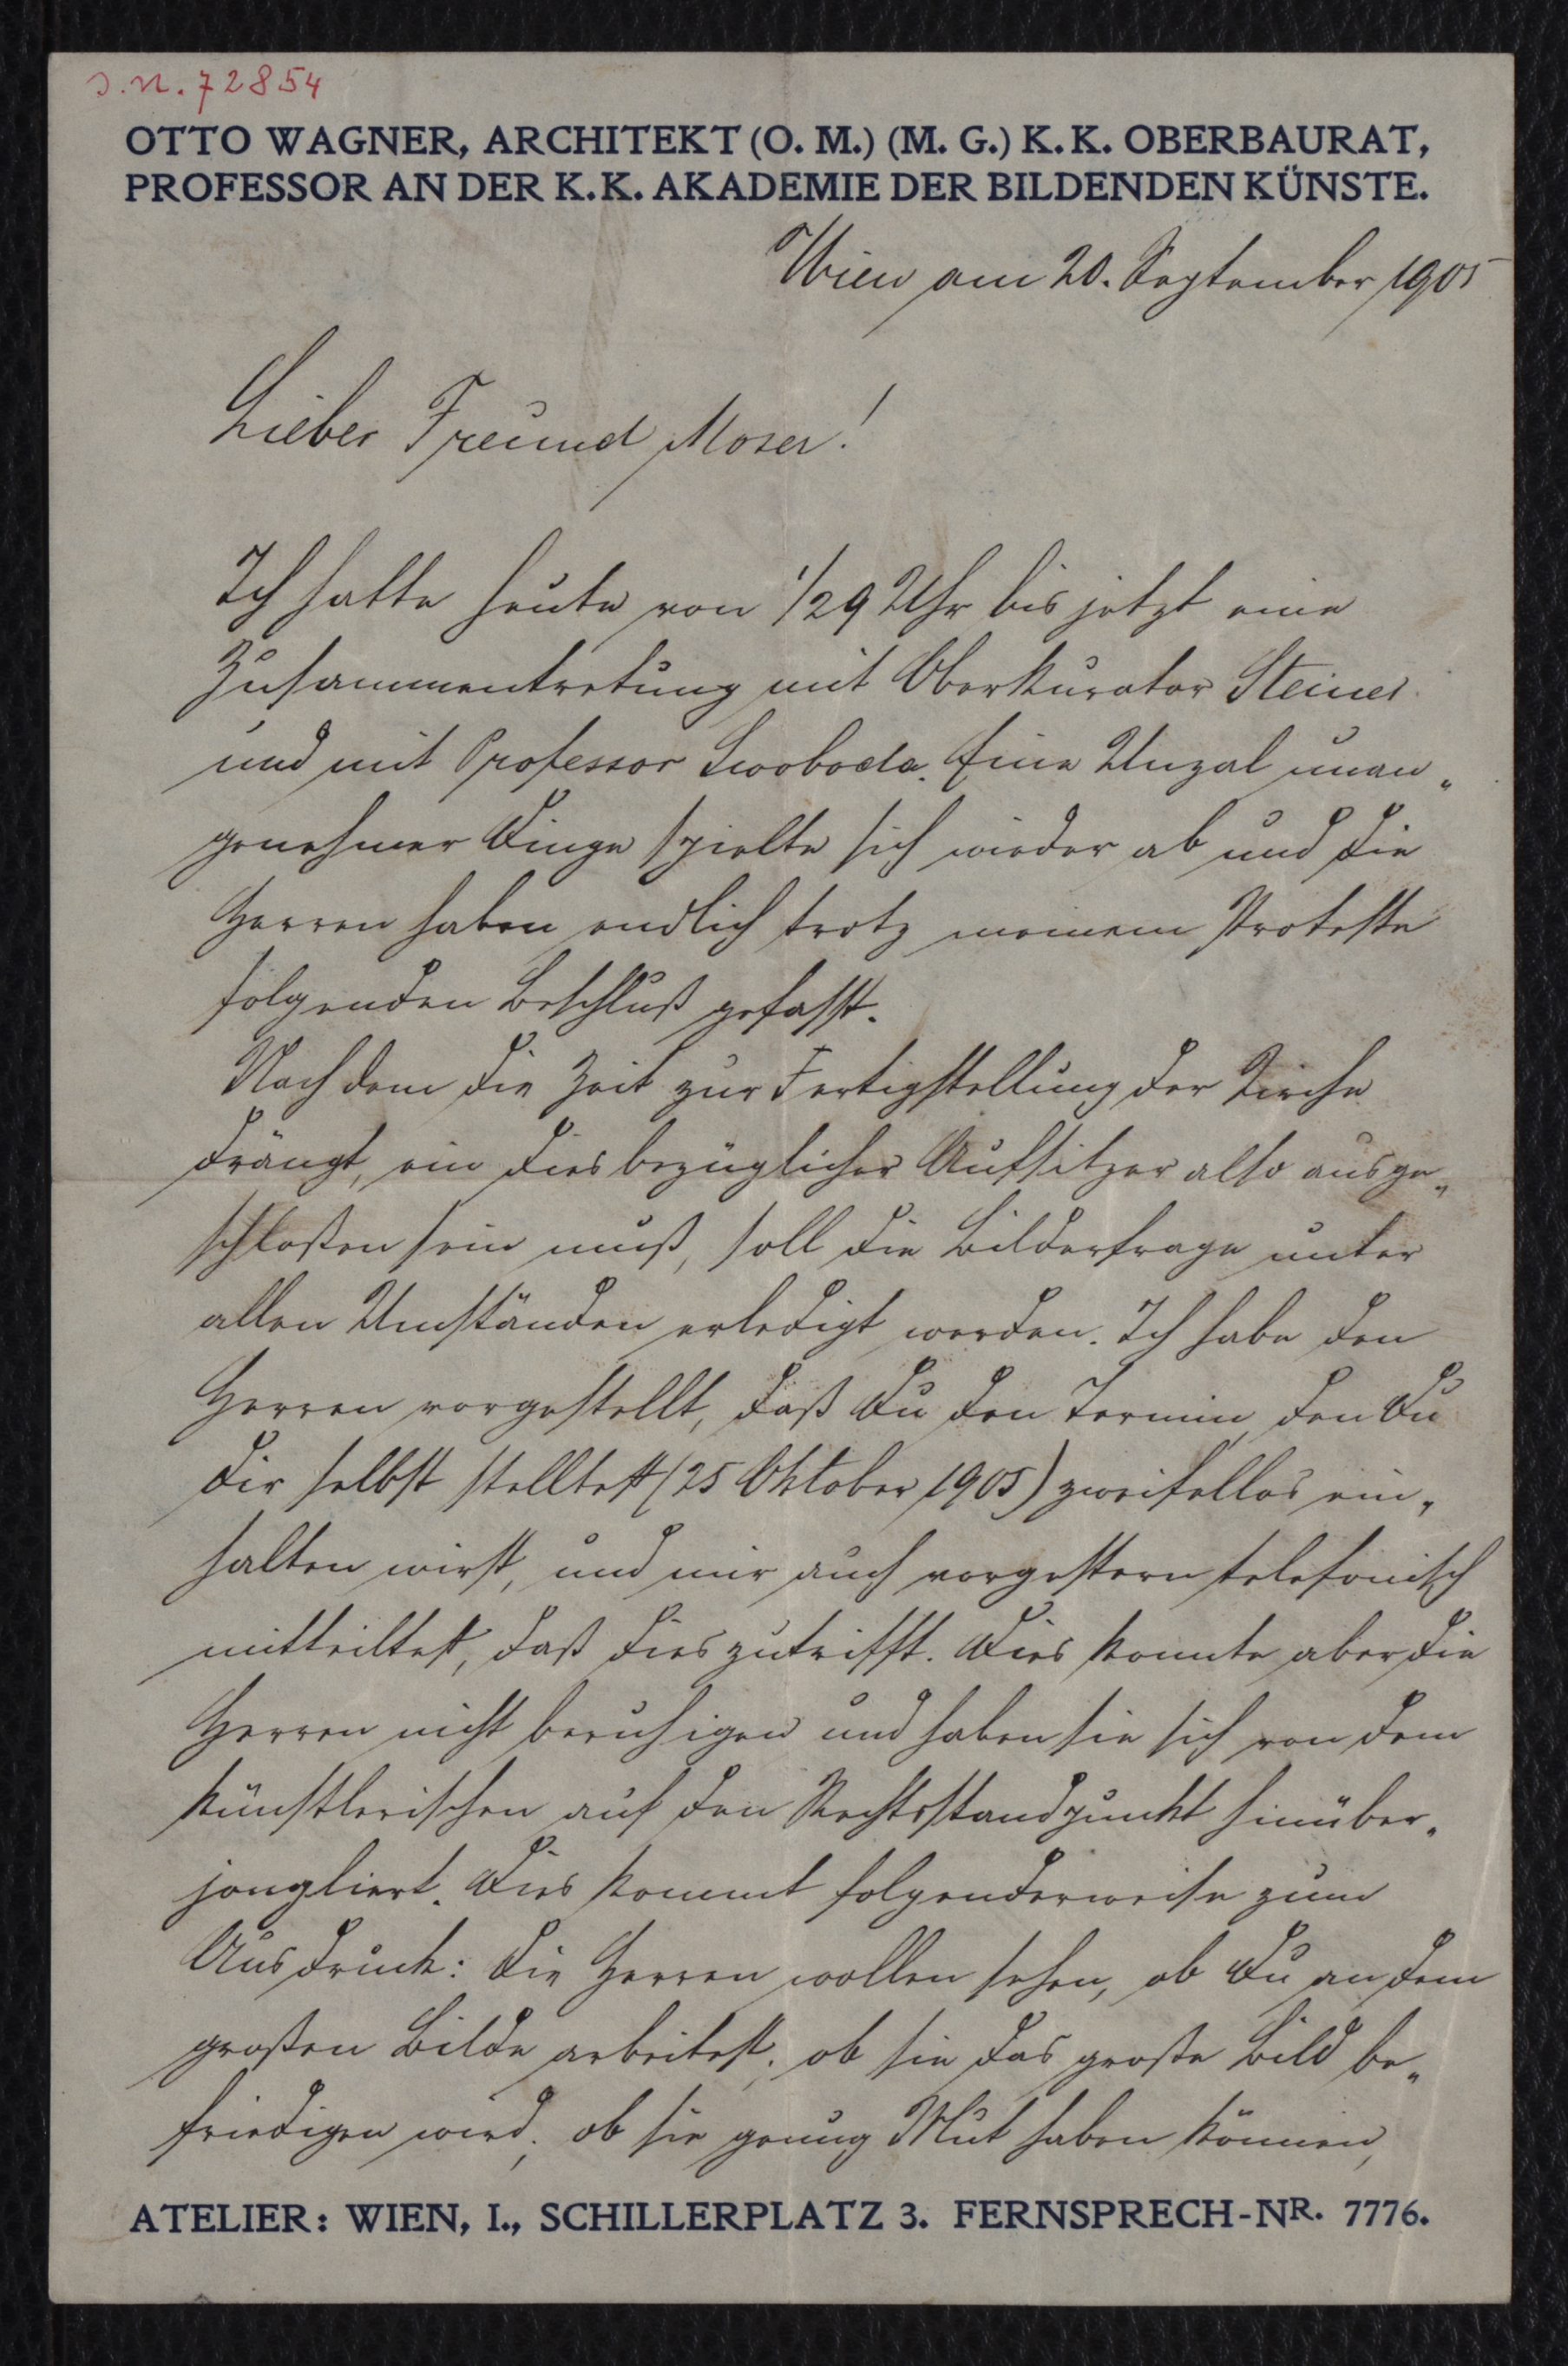 J.N. 72854
OTTO WAGNER, ARCHITEKT (O. M.) (M. G.) K. K. OBERBAURAT,
PROFESSOR AN DER K. K. AKADEMIE DER BILDENDEN KÜNSTE.
Wien am 20. September 1905
Lieber Freund Moser!
Ich hatte heute von 1/29 Uhr bis jetzt eine
Zusammentretung mit Oberkurator Steiner
und mit Professor Swoboda. Eine Unzal unan„
genehmer Dinge spielte sich wieder ab und die
Herren haben endlich trotz meinem Proteste
folgenden Beschluß gefasst.
Nachdem die Zeit zur Fertigstellung der Kirche
drängt, ein diesbezüglicher Aufsitzer also ausge„
schloßen sein muß, soll die Bilderfrage unter
allen Umständen erledigt werden. Ich habe den
Herren vorgestellt, daß Du den Termin, den Du
dir selbst stelltest (25 Oktober 1905) zweifellos ein„
halten wirst, und mir auch vorgestern telefonisch
mitteiltest, daß dies zutrifft. Dies konnte aber die
Herren nicht beruhigen und haben sie sich von dem
künstlerischen auf den Rechtsstandpunkt hinüber„
jongliert. Dies kommt folgenderweise zum
Ausdruck: Die Herren wollen sehen, ob Du an dem
großen Bilde arbeitest; ob sie das große Bild be„
friedigen wird; ob sie genug Mut haben können,
ATELIER: WIEN, I., SCHILLERPLATZ 3. FERNSPRECH-NR. 7776.